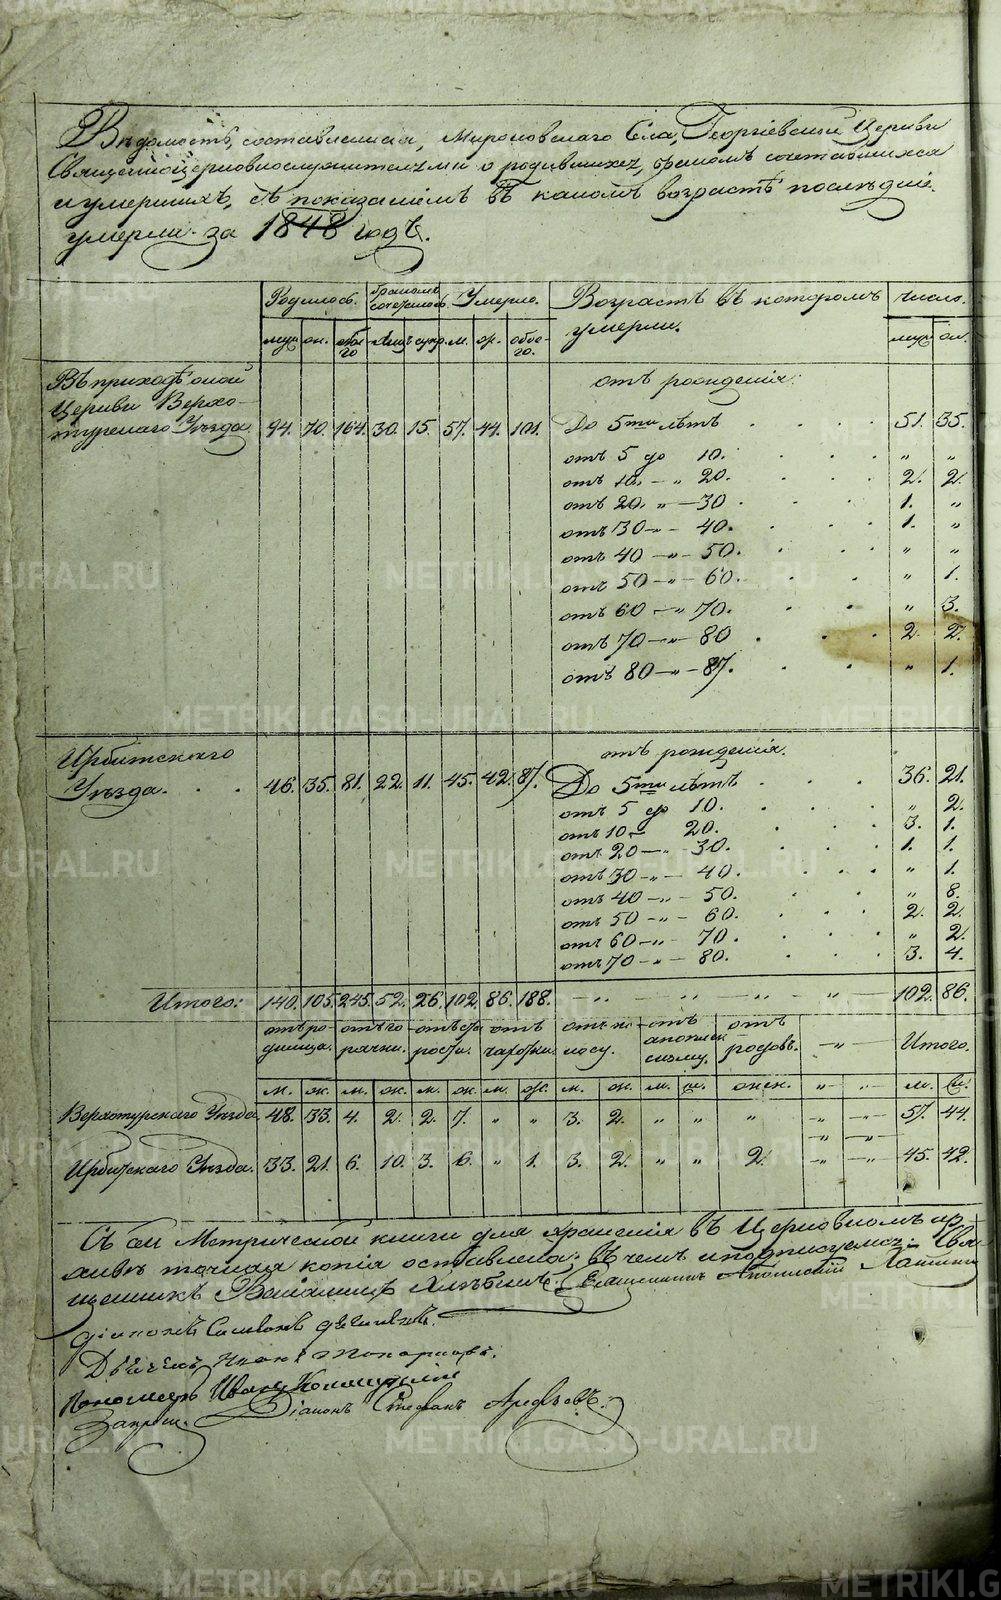 Вѣдомость, составленная, Мироновскаго Села, Георгіевской Церкви
Священноцерковнослужителями о родившихся, бракомъ сочетавшихся
и умершихъ, съ показаніемъ въ какомъ возрастѣ послѣдніе
умерли за 1848 годъ.
Родилось. бракомъ сочеталось Умерло. Возрастъ въ которомъ умерли. Число.
муж. ж. обоего лицъ супр. м. ж. обоего. муж. ж.
Въ приходѣ оной отъ рожденія:
Церкви Верхо-
турскаго Уѣзда 94. 70. 164. 30. 15. 57. 44. 101. До 5ти лѣтъ 51. 35.
отъ 5 до 10. " "
отъ 10 - " 20. 2. 2.
отъ 20. " - 30 1. "
отъ 30 - " - 40. 1. "
отъ 40 - " - 50. " "
отъ 50 - " - 60. " 1.
отъ 60 - " 70. " 3.
отъ 70 - " - 80 2. 2.
отъ 80 - " - 87. " 1.
Ирбитскаго отъ рожденія.
Уѣзда. 46. 35. 81. 22. 11. 45. 42. 87. До 5ти лѣтъ 36. 21.
отъ 5 до 10. " 2.
отъ 10 - 20. 3. 1.
отъ 20 - " - 30. 1. 1.
отъ 30 - " - 40. " 1.
отъ 40 - " - 50. " 8.
отъ 50 - " - 60. 2. 2.
отъ 60 - " - 70. " 2.
отъ 70 - " - 80. 3. 4.
Итого: 140. 105. 245. 52. 26. 102. 86. 188. - " - " - " - " 102. 86.
отъ родимца. отъ горячки. отъ старости. отъ чахотки. отъ поносу. отъ отъ родовъ. - " - Итого.
м. ж. м. ж. м. ж. м. ж. м. ж. м. ж. женск. " " м. ж.
Верхотурскаго Уѣзда. 48. 33. 4. 2. 2. 7. " " 3. 2. " " " - " - " - 57. 44.
Ирбитскаго Уѣзда. 33. 21. 6. 10. 3. 6. " 1. 3. 2. " " 2. - " - " - 45. 42.
Съ сей Метрической книги для храненія въ Церковномъ ар-
хивѣ точная копія оставлена; въ чемъ и подписуемся: Свя-
щенникъ Священникъ
діаконъ
Дьячекъ Иванъ
Пономарь Иванъ
Діаконъ Стефанъ
METRIKI.GASO-URAL.RU